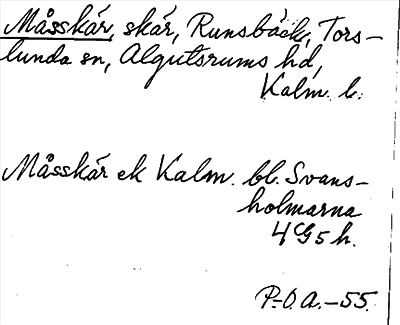 Måsskär, skär, Runsbäck, Tors-
lunda sn, Algutsrums hd,
Kalm. l.
Måsskär ek Kalm. bl. Svans-
holmarna
4G5h.
P.-O.A.-55.